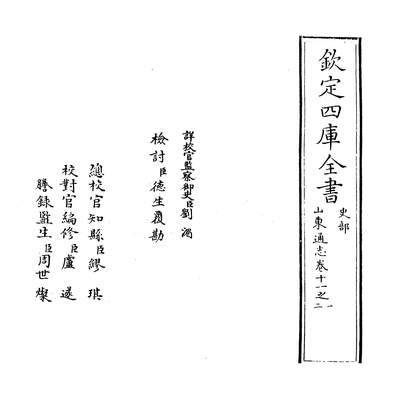 欽定四庫全書
史部
山東通志卷十一之一二
詳校官監察御史臣劉湄
檢討臣德生覆勘
總校官知縣臣繆琪
校對官編修臣盧遂
謄錄監生臣周世燦